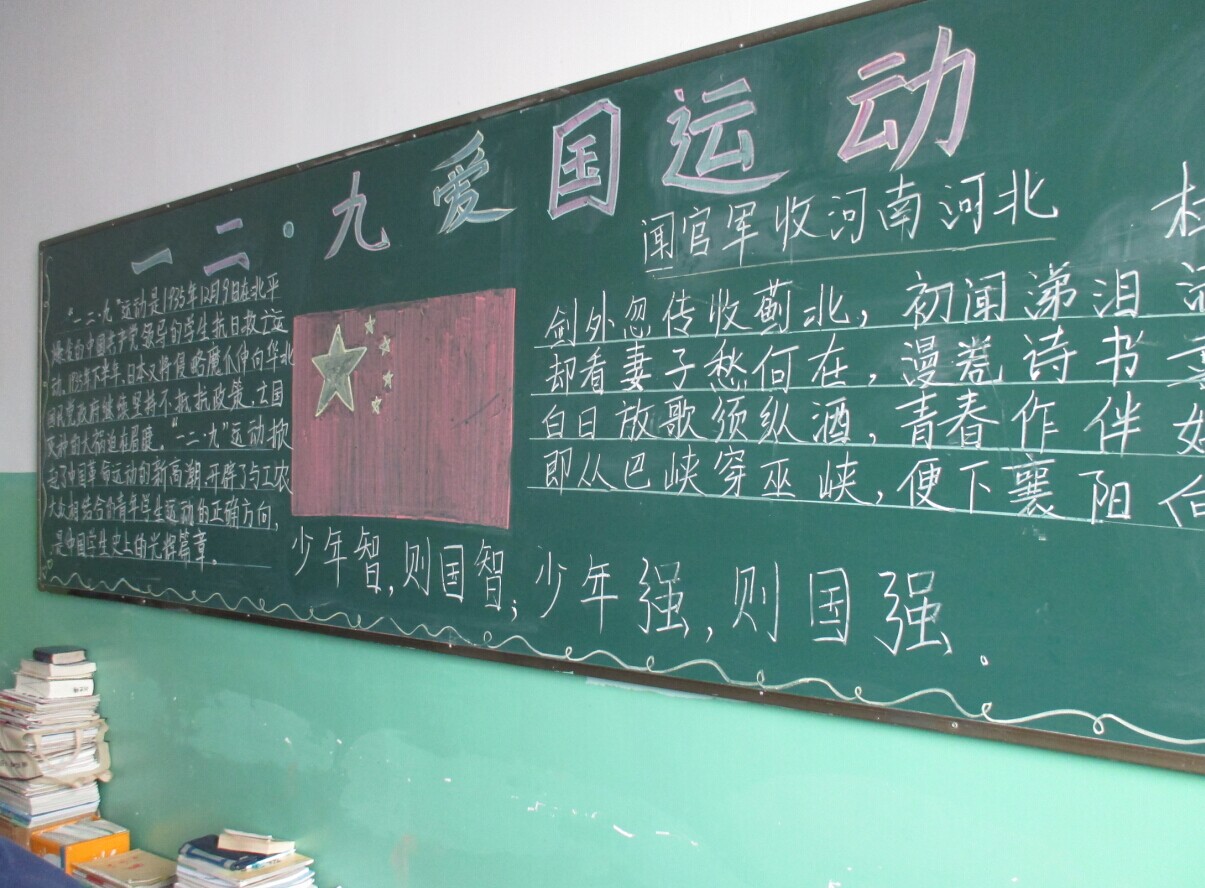 一二·九爱国运动
"一二·九"运动是1935年12月9日在北平
爆发的中国共产党领导的学生抗日救亡运
动。1935年下半年,日本又将侵略魔爪伸向华北
国民党政府继续坚持不抵抗政策,亡国
灭种的大祸迫在眉睫。"一二·九"运动掀
起了中国革命运动的新高潮,开辟了与工农
大众相结合的青年学生运动的正确方向,
是中国学生史上的光辉篇章。
闻官军收河南河北 杜
剑外忽传收蓟北,初闻涕泪
却看妻子愁何在,漫卷诗书
白日放歌须纵酒,青春作伴好
即从巴峡穿巫峡,便下襄阳向
少年智,则国智;少年强,则国强。